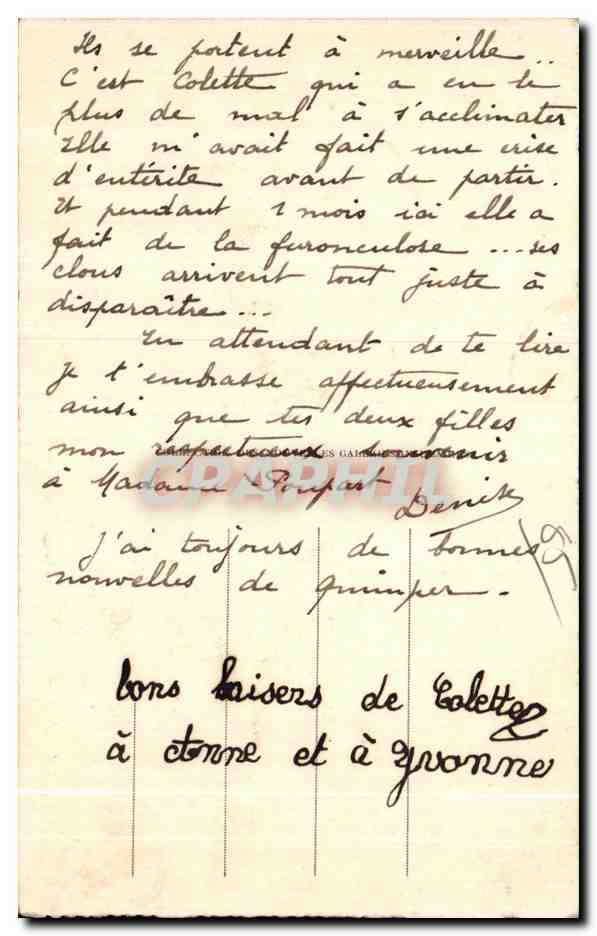 Ils se portent à merveille..
C'est Colette qui a eu le
plus de mal à s'acclimater
Elle m'avait fait une crise
d'entérite avant de partir.
Et pendant 1 mois ici elle a
fait de la furonculose ... ses
clous arrivent tout juste à
disparaître...
En attendant de te lire
je t'embrasse affectueusement
ainsi que tes deux filles
mon respectueux souvenir
à Madame Poupart
Denise
CPAPHIL
59
J'ai toujours de bonnes
nouvelles de quimper.
bons baisers de Colette
à Anne et à Yvonne